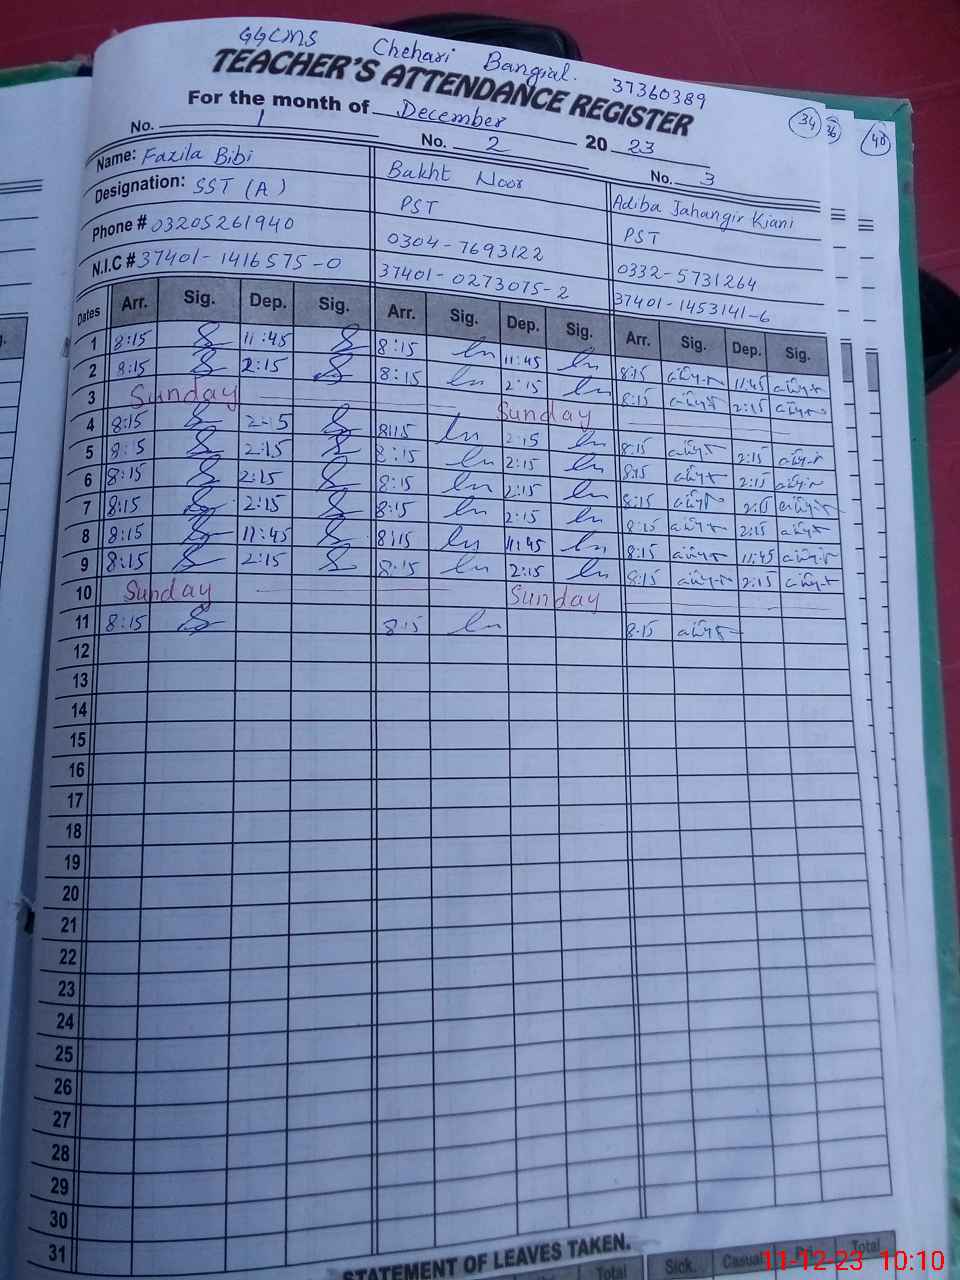 GGCMS Chehari Bangial. 37360389
TEACHER'S ATTENDANCE REGISTER
34 36 40
For the month of December 20 23
No. 1 No. 2 No. 3
Name: Fazila Bibi Bakht Noor Adiba Jahangir Kiani
Designation: SST (A) PST PST
Phone # 03205261940 0304-7693122 0332-5731264
N.I.C # 37401-1416575-0 37401-0273075-2 37401-1453141-6
Dates Arr. Sig. Dep. Sig. Arr. Sig. Dep. Sig. Arr. Sig. Dep. Sig.
1 8:15 11:45 8:15 11:45 8:15 11:45
2 8:15 2:15 8:15 2:15 8:15 2:15
3 Sunday Sunday
4 8:15 2-15 8:15 2:15 8:15 2:15
5 8:15 2:15 8:15 2:15 8:15 2:15
6 8:15 2:15 8:15 2:15 8:15 2:15
7 8:15 2:15 8:15 2:15 8:15 2:15
8 8:15 11:45 8:15 11:45 8:15 11:45
9 8:15 2:15 8:15 2:15 8:15 2:15
10 Sunday Sunday
11 8:15 8:15 8:15
12
13
14
15
16
17
18
19
20
21
22
23
24
25
26
27
28
29
30
31
STATEMENT OF LEAVES TAKEN.
Total Sick. Casual Total
11-12-23 10:10